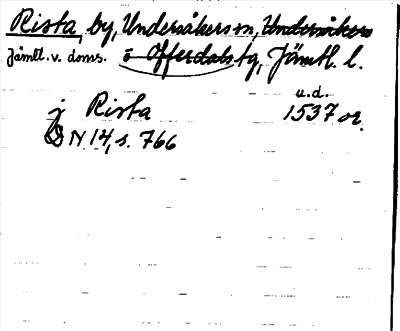 Rista, by, Undersåkers sn, Undersåkers
Jämtl. v. doms. o Offerdals tg, Jämtl. l.
j Rista u.d. 1537 or.
DN 14, s. 766